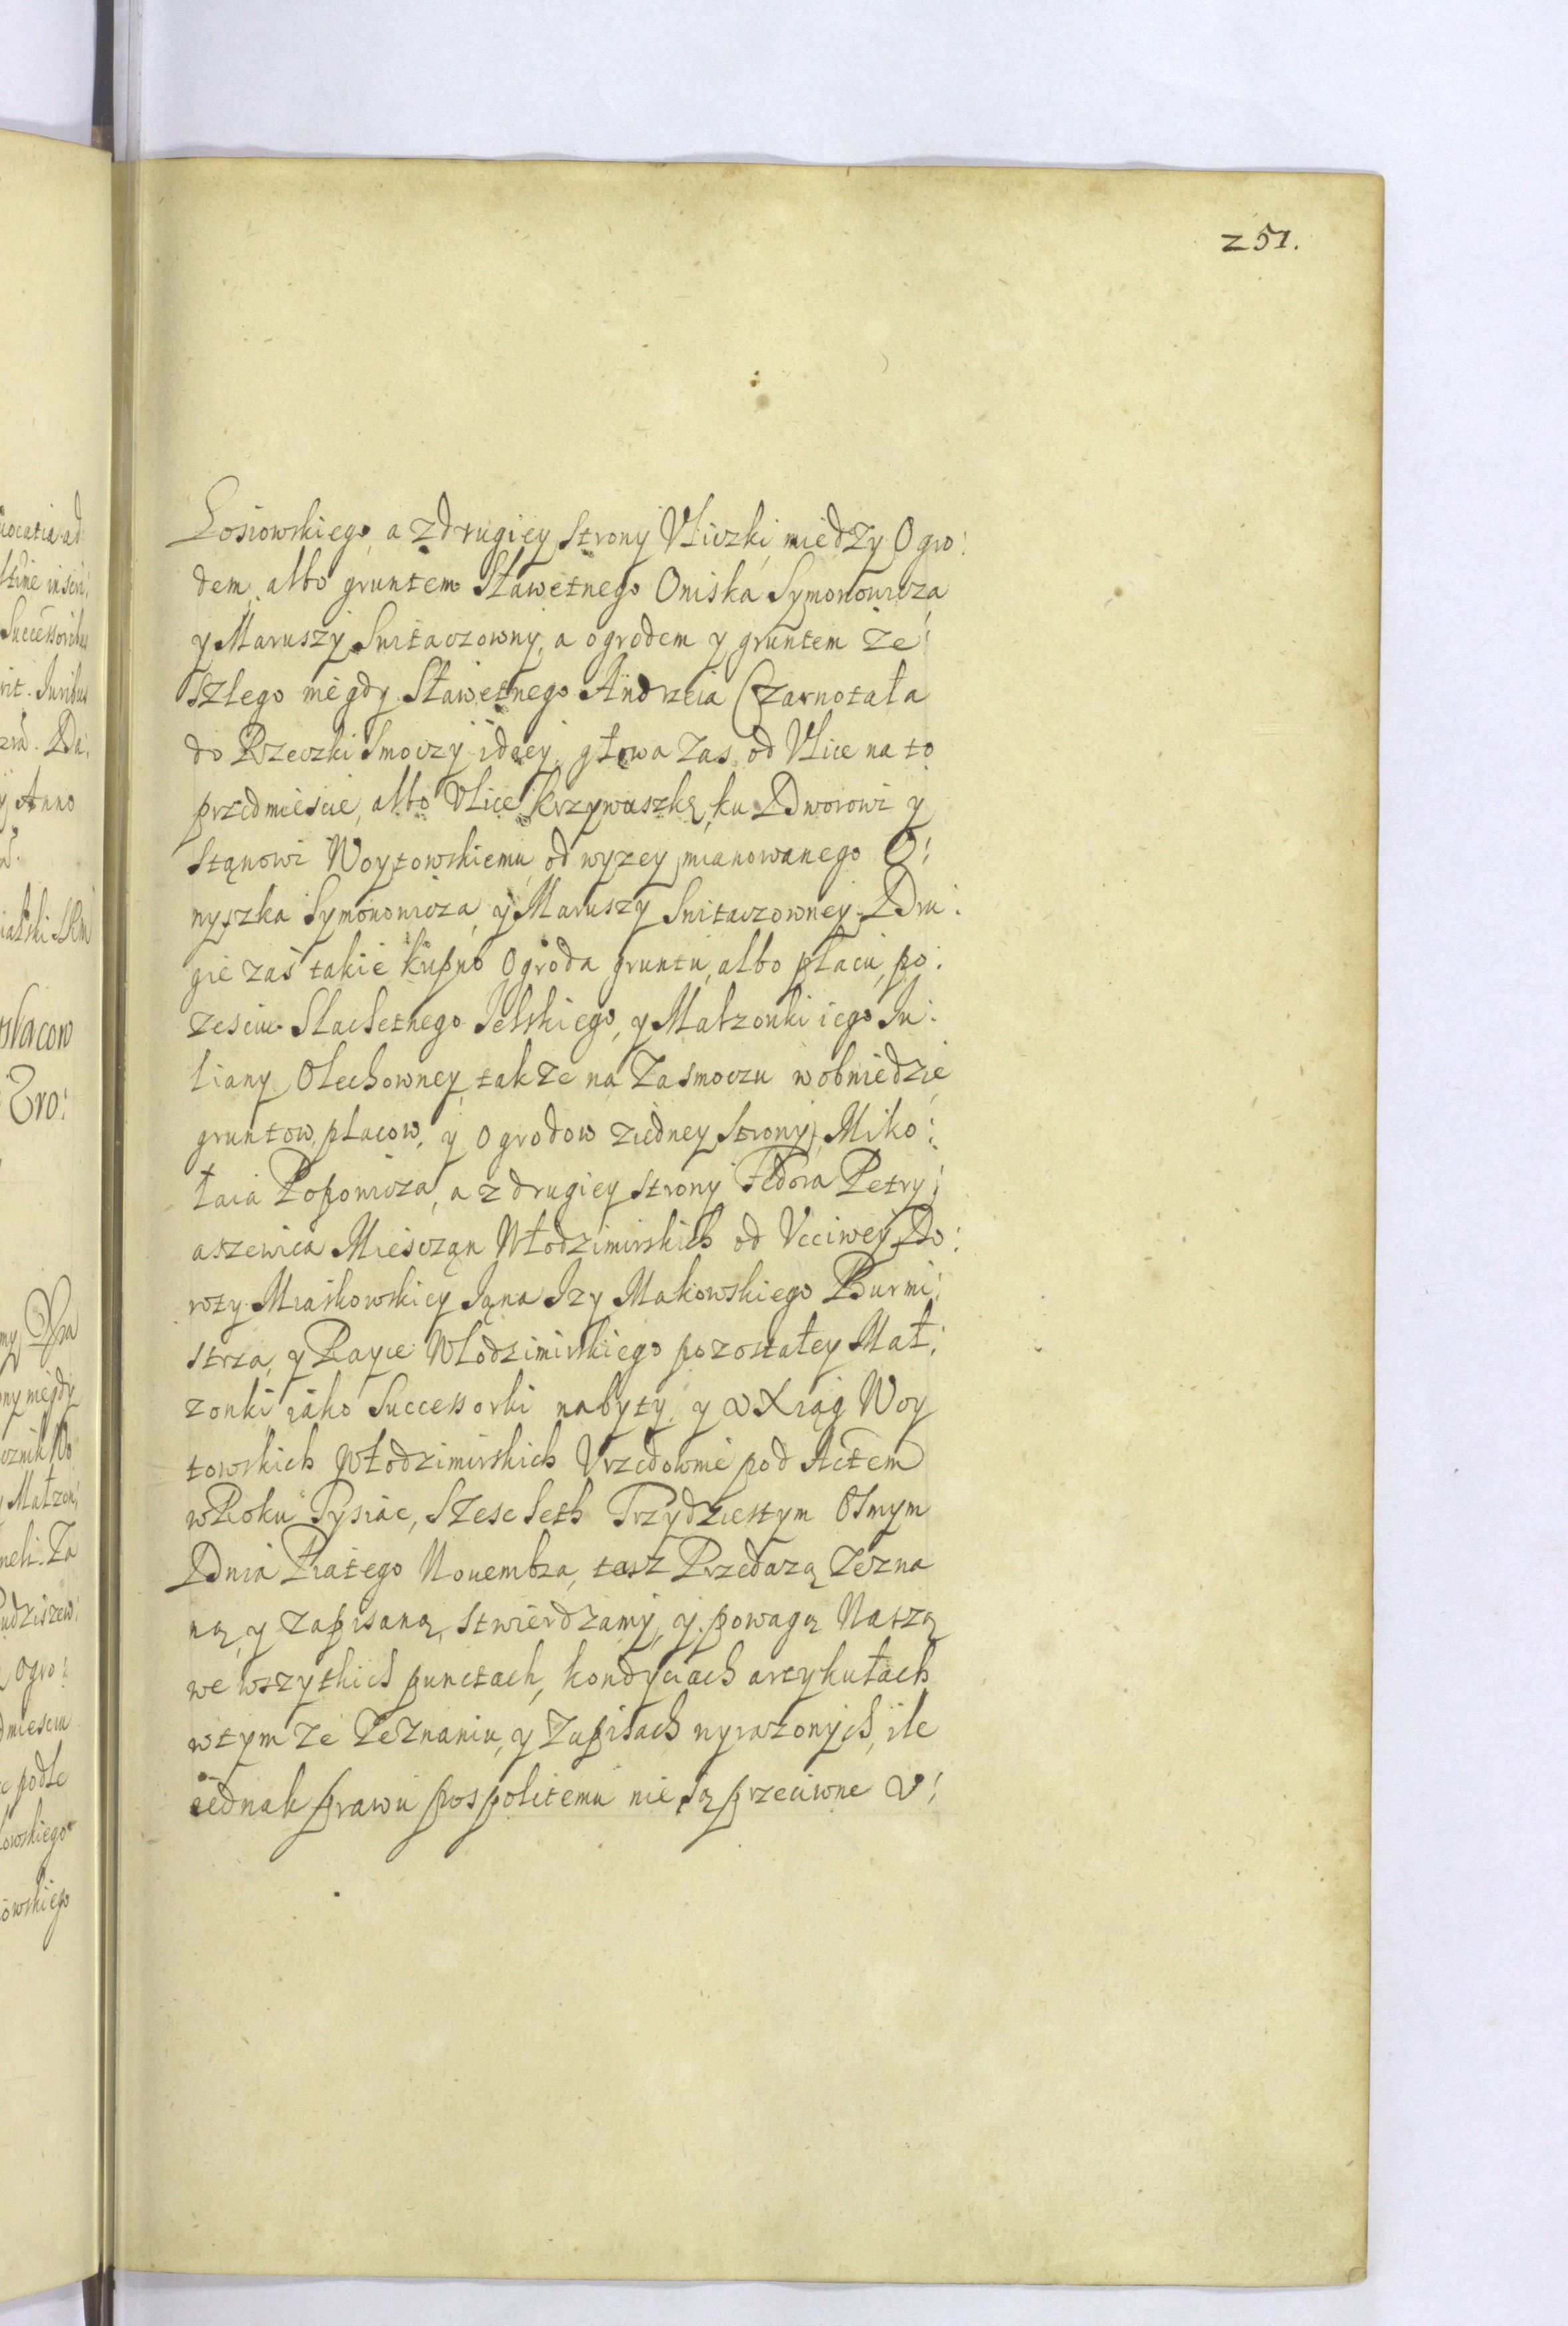 251.
Łosiowskiego, a z drugiey strony Vliczki między Ogro:
dem, albo gruntem Sławetnego Oniska Symonowicza
y Maruszy Snitaczowny, a ogrodem y gruntem ze:
szłego niegdy Sławetnego Andrzeia Czarnotała
do Rzeczki Smoczy idącey, głowa zas od Vlice na to
przedmiescie, albo Vlice krzywuszkę, ku Dworowi y
Stąnowi Woytowskiemu, od wyzey mianowanego O:
nyszka Symonowicza, y Maruszy Snitaczowney. Dru:
gie zas takie kupno Ogroda gruntu, albo płacu, po:
zesciu Slachetnego Jelskiego, y Małzonki iego Ju:
liany Olechowney, takze na Zasmoczu w obmiedzie
gruntow, placow, y Ogrodow ziedney strony, Miko:
łaia Popowicza, a z drugiey strony Fedora Petry:
aszewica Miesczan Włodzimirskich od Vcciwey Do:
roty Miaskowskiey Jana Izy Makowskiego Burmi:
strza, y Rayce Włodzimirskiego pozostałey Mał:
zonki iako Successorki nabyty, y w Xiąg Woy
towskich Włodzimirskich Vrzędownie pod Actem
w Roku Tysiąc, Szesc seth Trzydziestym Osmym
Dnia Piątego Nouembra, tesz Przedazą zezna
ną, y zapisaną, stwierdzamy, y powagą Naszą
we wszytkich punctach, kondyciach artykułach
wtym ze Zeznaniu, y Zapisach wyrazonych, ile
iednak prawu pospolitemu nie są przeciwne v: